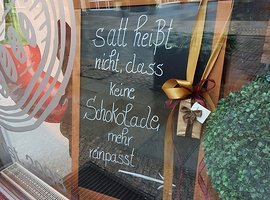 satt heißt
nicht, dass
keine
Schokolade
mehr
ranpasst